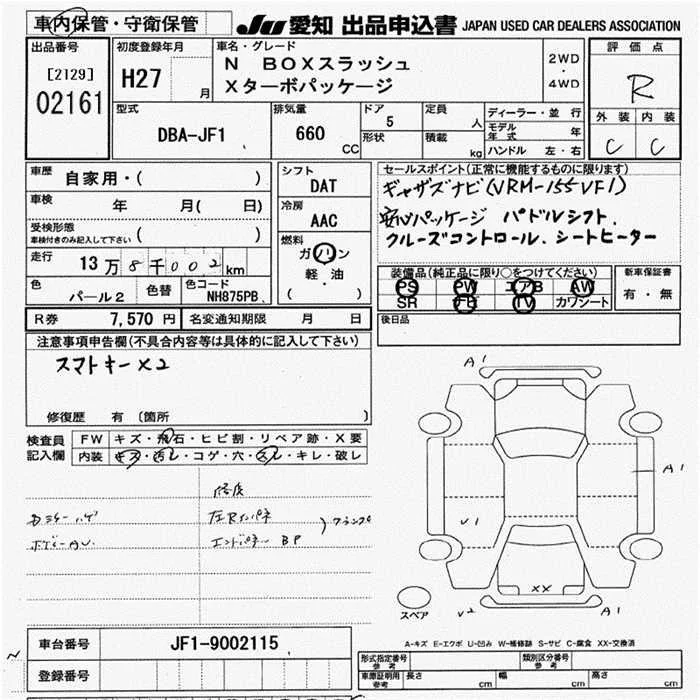 車内保管・守衛保管
JU 愛知 出品申込書 JAPAN USED CAR DEALERS ASSOCIATION
出品番号
[2129]
02161
初度登録年月
H27 月
車名・グレード
N BOXスラッシュ
Xターボパッケージ
2WD
・
4WD
評価点
R
外装 内装
C C
型式
DBA-JF1
排気量
660 CC
ドア
5
形状
定員
人
積載
kg
ディーラー・並行
モデル年式 年
ハンドル 左・右
車歴 自家用・( )
車検 年 月( 日)
受検形態 ( )
車検付きのみ記入して下さい
走行 13万8千002km
色 パール2
色替
色コード NH875PB
シフト
DAT
冷房
AAC
燃料
ガソリン
軽・油
( )
セールスポイント(正常に機能するものに限ります)
ギャザズナビ(VRM-155VFI)
安心パッケージ パドルシフト、
クルーズコントロール、シートヒーター
装備品(純正品に限り○をつけてください)
PS PW エアB AW
SR ナビ TV カワシート
新車保証書
有・無
後日品
R券 7,570円 名変通知期限 月 日
注意事項申告欄(不具合内容等は具体的に記入して下さい)
スマトキーX2
修復歴 有 (箇所 )
検査員記入欄
FW キズ・飛石・ヒビ割・リペア跡・X要
内装 キズ・汚レ・コゲ・穴・スレ・キレ・破レ
修復
左Rインパネ
エンドパネー BP
A1
A1
V1
XX
V2
A1
スペア
A-キズ E-エクボ U-凹み W-補修跡 S-サビ C-腐食 XX-交換済
車台番号 JF1-9002115
登録番号
形式指定番号 参考
類別区分番号 参考
車庫証明用 参考 長さ cm 幅 cm 高さ cm